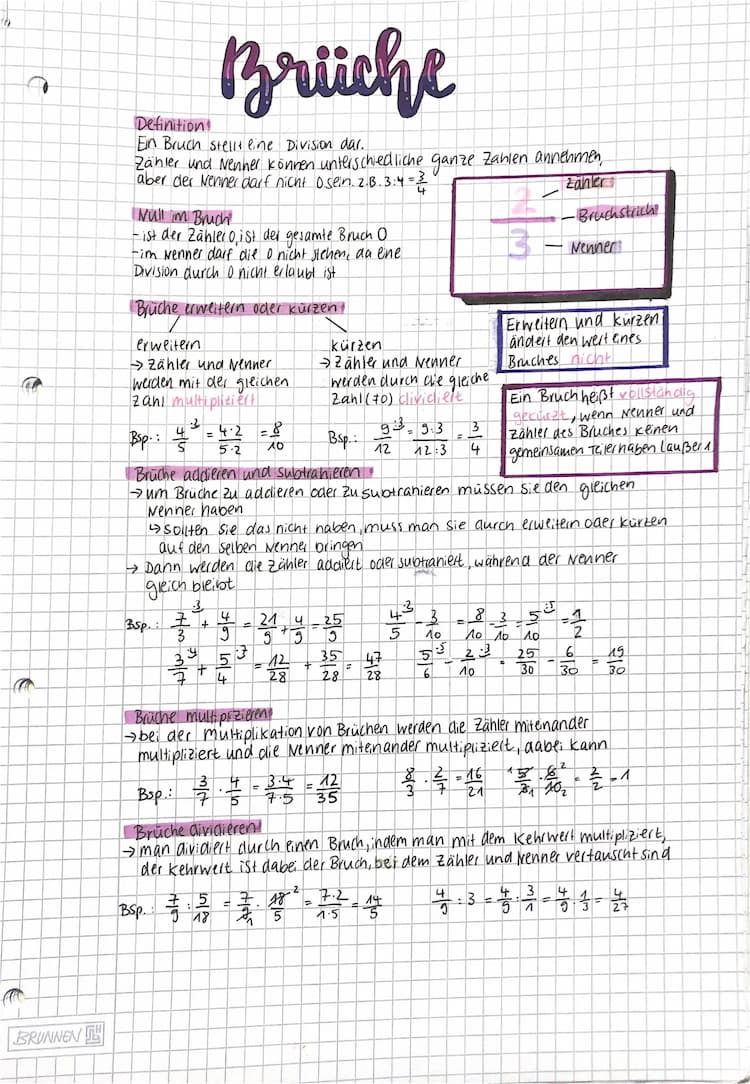 Brüche
Definition:
Ein Bruch stellt eine Division dar.
Zähler und Nenner können unterschiedliche ganze Zahlen annehmen,
aber der Nenner darf nicht 0 sein. z.B. 3:4 = 3/4
2/3
Zähler
Bruchstrich
Nenner
Null im Bruch
- ist der Zähler 0, ist der gesamte Bruch 0
- im Nenner darf die 0 nicht stehen, da eine
Division durch 0 nicht erlaubt ist
Brüche erweitern oder kürzen
erweitern
→ Zähler und Nenner
werden mit der gleichen
Zahl multipliziert
Bsp.: 4/5 = 4·2/5·2 = 8/10
kürzen
→ Zähler und Nenner
werden durch die gleiche
Zahl (≠0) dividiert
Bsp.: 9/12 :3 = 9:3/12:3 = 3/4
Erweitern und kürzen
ändert den Wert eines
Bruches nicht
Ein Bruch heißt vollständig
gekürzt, wenn Nenner und
Zähler des Bruches keinen
gemeinsamen Teiler haben (außer 1
Brüche addieren und subtrahieren
→ um Brüche zu addieren oder zu subtrahieren müssen sie den gleichen
Nenner haben
↳ sollten sie das nicht haben, muss man sie durch erweitern oder kürzen
auf den selben Nenner bringen
→ Dann werden die Zähler addiert oder subtrahiert, während der Nenner
gleich bleibt
Bsp.: 7/3 + 4/9 = 21/9 + 4/9 = 25/9 4/5 - 3/10 = 8/10 - 3/10 = 5/10 = 1/2
3/7 + 5/4 = 12/28 + 35/28 = 47/28 5/6 - 2/10 = 25/30 - 6/30 = 19/30
Brüche multiplizieren
→ bei der Multiplikation von Brüchen werden die Zähler miteinander
multipliziert und die Nenner miteinander multipliziert, dabei kann
Bsp.: 3/7 · 4/5 = 3·4/7·5 = 12/35 8/3 · 2/7 = 16/21 = 2/2 = 1
Brüche dividieren
→ man dividiert durch einen Bruch, indem man mit dem Kehrwert multipliziert,
der Kehrwert ist dabei der Bruch, bei dem Zähler und Nenner vertauscht sind
Bsp.: 7/9 : 5/18 = 7/9 · 18/5 = 7·2/1·5 = 14/5 4/9 : 3 = 4/9 : 3/1 = 4/9 · 1/3 = 4/27
BRUNNEN